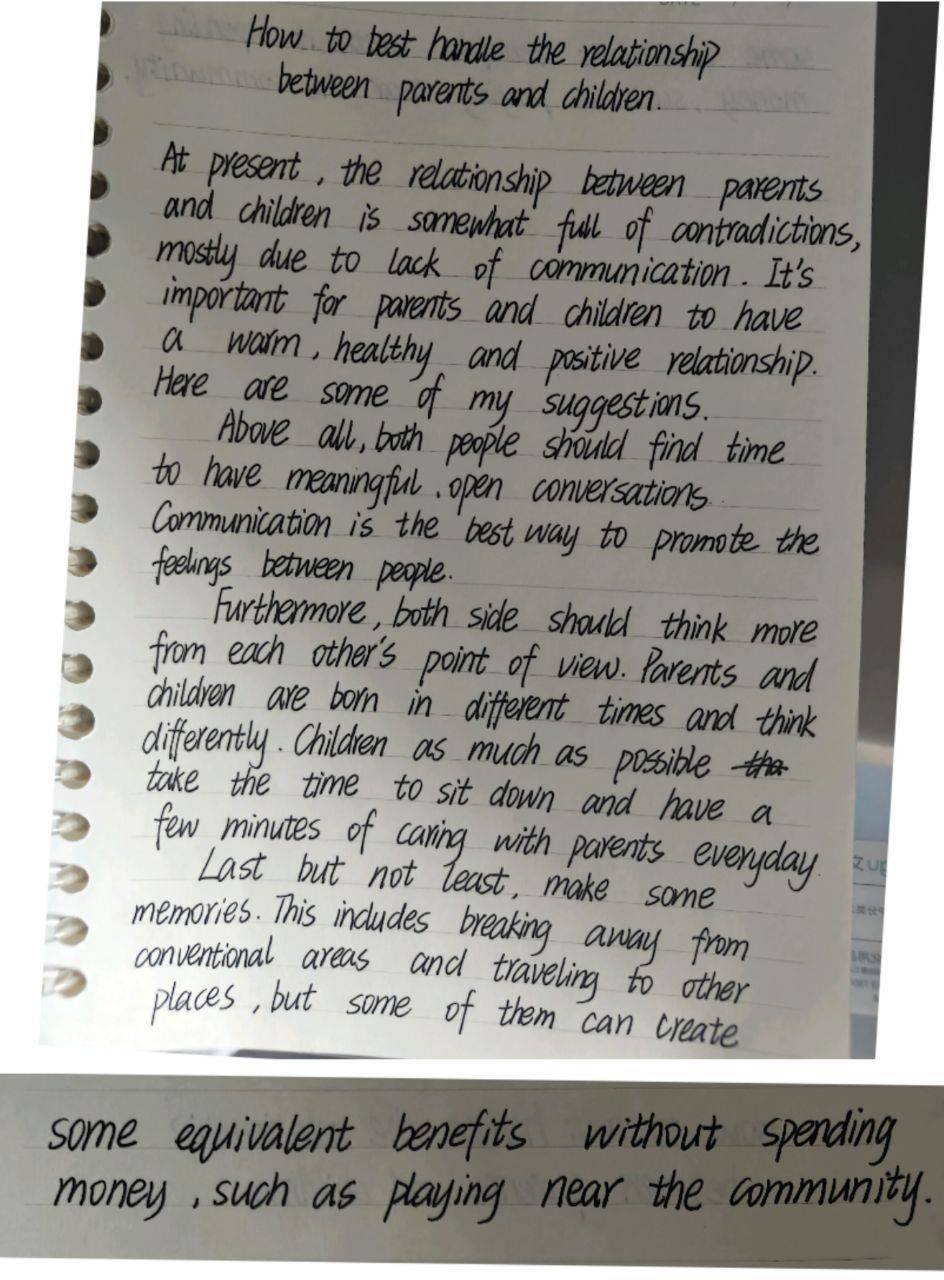 How to best handle the relationship
between parents and children.
At present, the relationship between parents
and children is somewhat full of contradictions,
mostly due to lack of communication. It's
important for parents and children to have
a warm, healthy and positive relationship.
Here are some of my suggestions.
Above all, both people should find time
to have meaningful, open conversations.
Communication is the best way to promote the
feelings between people.
Furthermore, both side should think more
from each other's point of view. Parents and
children are born in different times and think
differently. Children as much as possible tha
take the time to sit down and have a
few minutes of caring with parents everyday.
Last but not least, make some
memories. This includes breaking away from
conventional areas and traveling to other
places, but some of them can create
some equivalent benefits without spending
money, such as playing near the community.